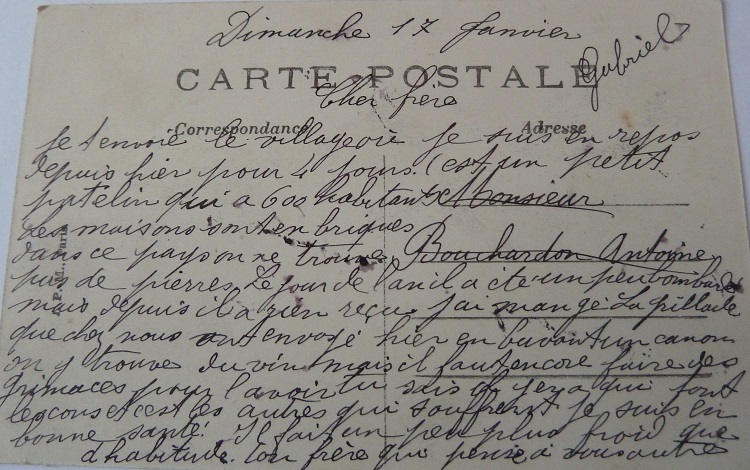 Dimanche 17 Janvier
Gabriel
CARTE POSTALE
Cher frère
Correspondance
Adresse
Je t envoie le village où je suis en repos
depuis hier pour 4 jours. C est un petit
patelin qui a 600 habitants Monsieur
Les maisons sont en briques
dans ce pays on ne trouve Bouchardon Antoine
pas de pierres, Le jour de l an il a été un peu bombardé
mais depuis il a rien reçu. J ai mangé la
que chez nous ont envoyé hier en buvant un canon
on y trouve du vin mais il faut encore faire des
grimaces pour l avoir tu sais qu il y en a qui font
les cons et c est les autres qui souffrent je suis en
bonne santé. Il fait un peu plus froid que
d habitude. Ton frère qui pense à vous autres
Paris